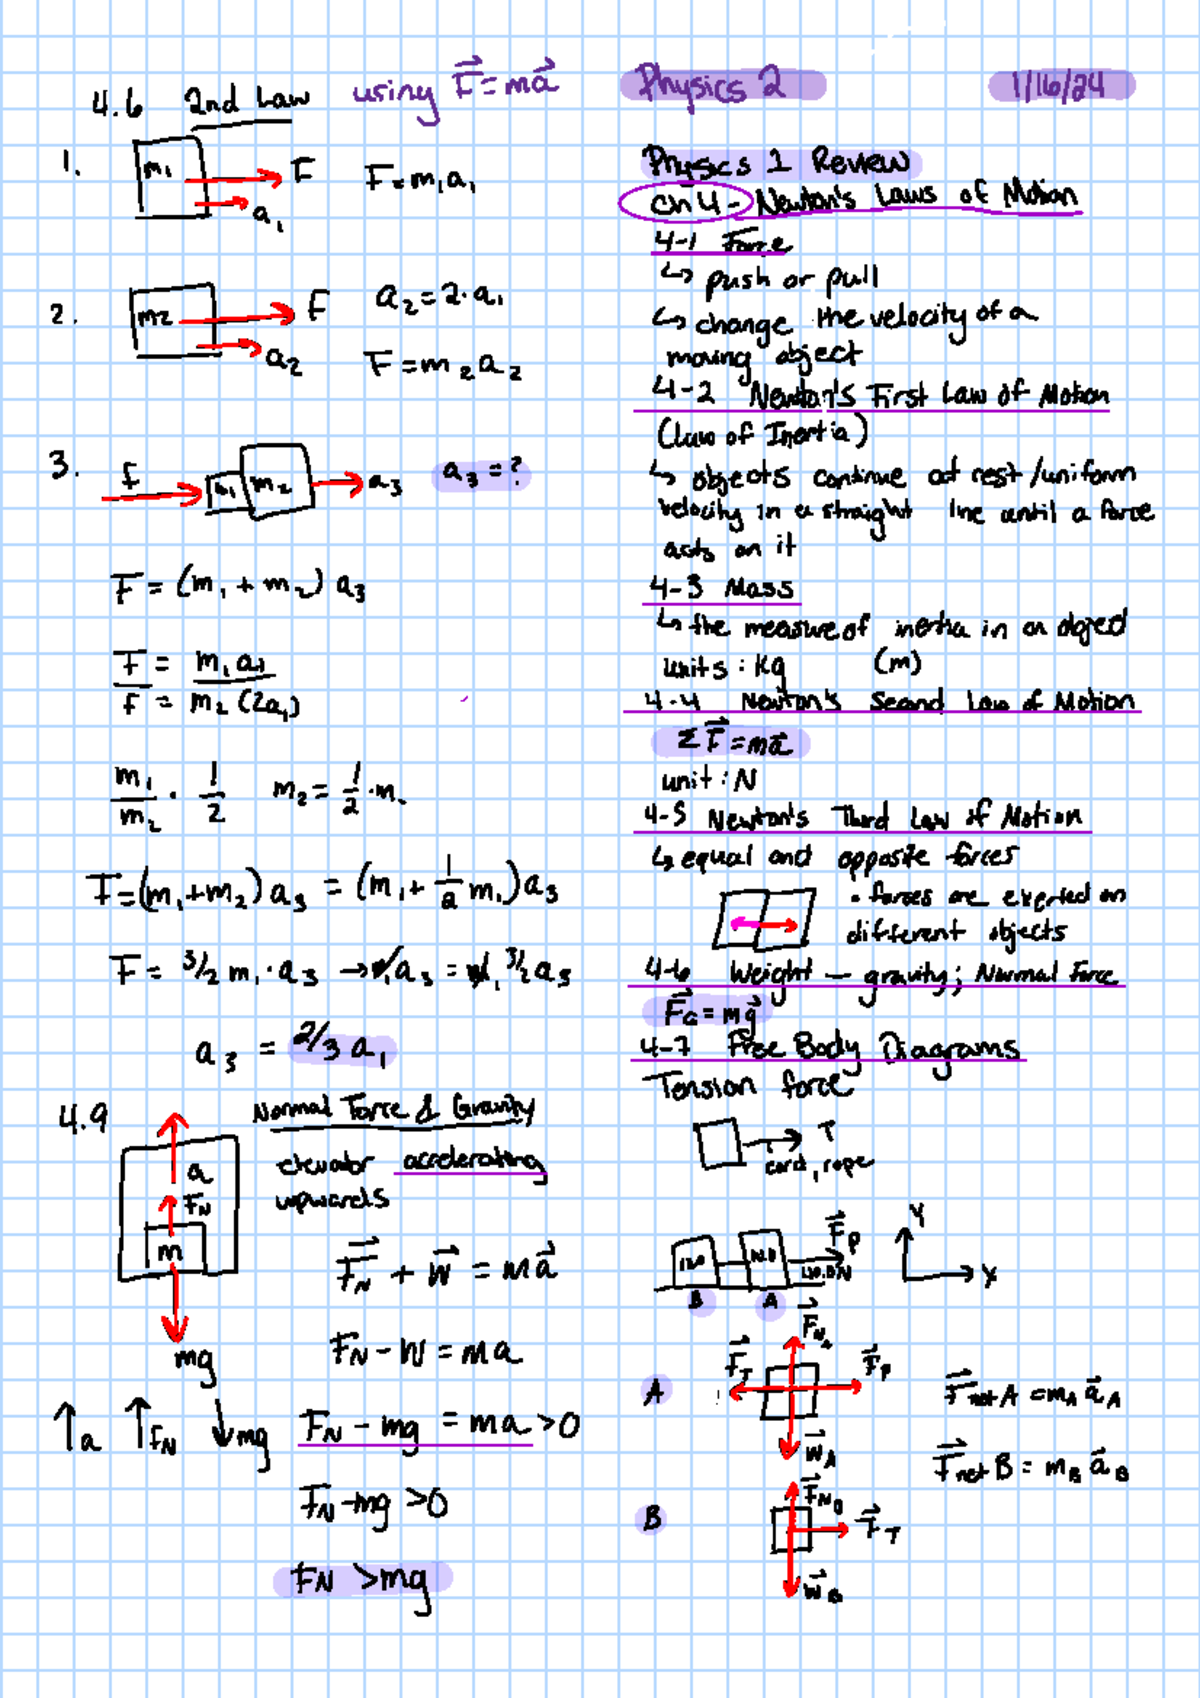 4.6 2nd Law using F⃗ = ma⃗
1.
m₁
F
a₁
F = m₁a₁
2.
m2
F
a₂
a₂ = 2·a₁
F = m₂a₂
3.
F
m₁
m₂
a₃
a₃ = ?
F = (m₁ + m₂) a₃
F = m₁a₁
F = m₂(2a₁)
m₁/m₂ · 1/2 m₂ = 1/2 · m₁
F = (m₁+m₂) a₃ = (m₁ + 1/2 m₁) a₃
F = 3/2 m₁ · a₃ → m₁a₃ = m₁ 3/2 a₃
a₃ = 2/3 a₁
4.9 Normal Force & Gravity
elevator accelerating
upwards
a
FN
m
mg
F⃗N + W⃗ = ma⃗
FN - W = ma
↑a ↑FN ↓mg
FN - mg = ma > 0
FN - mg > 0
FN > mg
Physics 2 1/16/24
Physics 1 Review
Ch 4 - Newton's Laws of Motion
4-1 Force
↳ push or pull
↳ change the velocity of a
moving object
4-2 Newton's First Law of Motion
(law of Inertia)
↳ objects continue at rest/uniform
velocity in a straight line until a force
acts on it
4-3 Mass
↳ the measure of inertia in an object
units : kg (m)
4-4 Newton's Second Law of Motion
ΣF⃗ = ma⃗
unit : N
4-5 Newton's Third Law of Motion
↳ equal and opposite forces
• forces are exerted on
different objects
4-6 Weight - gravity; Normal Force
F⃗G = mg⃗
4-7 Free Body Diagrams
Tension force
T
cord, rope
F⃗p
B A
Y
X
A
F⃗NA
F⃗T
F⃗P
W⃗A
F⃗net A = mA a⃗A
F⃗net B = mB a⃗B
B
F⃗NB
F⃗T
W⃗B